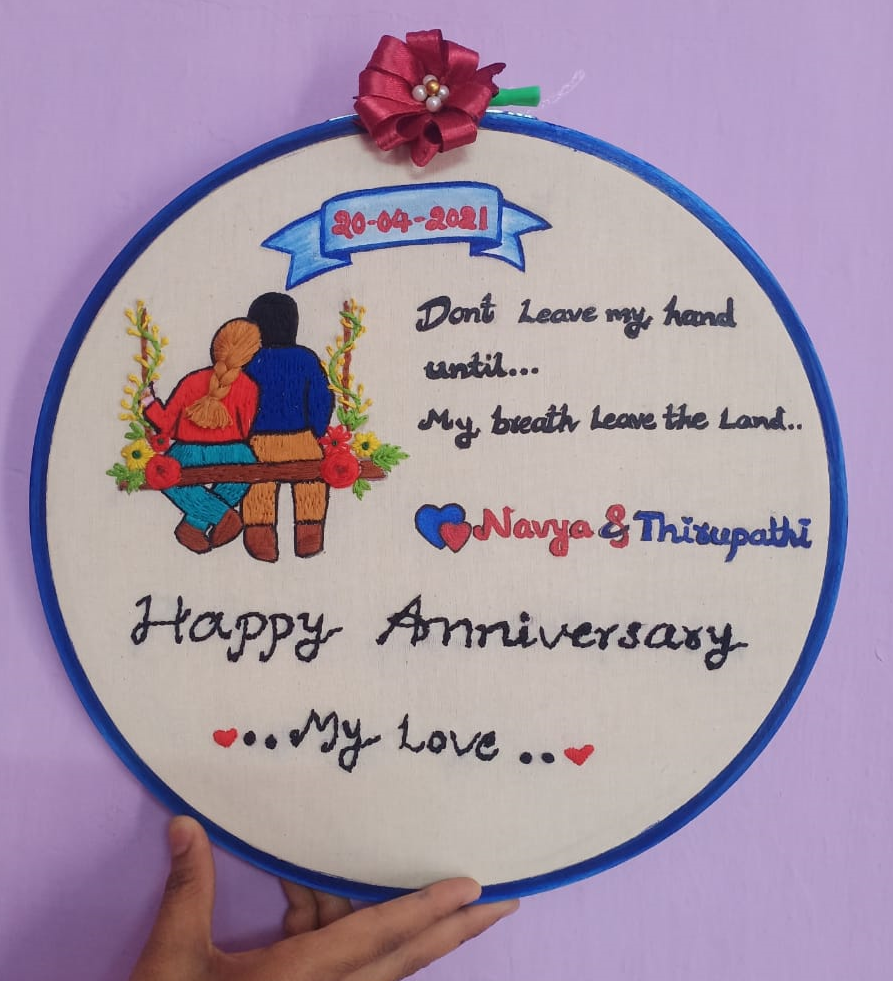 20-04-2021
Dont Leave my hand
until...
My breath Leave the Land..
Navya & Thirupathi
Happy Anniversary
...My Love ..